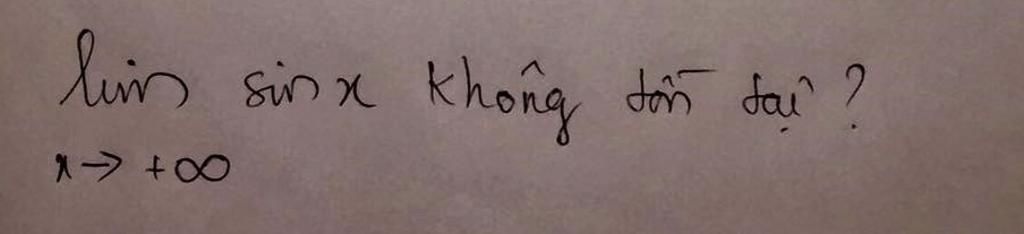 lim sin x không tồn tại ?
x → +∞